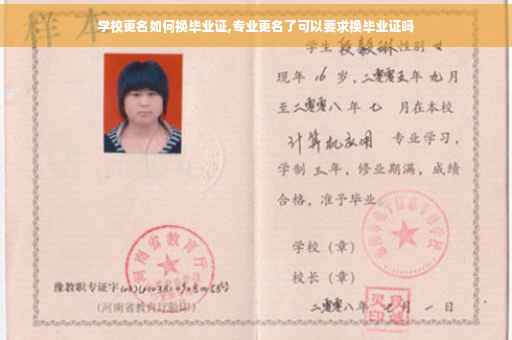 学校更名如何换毕业证,专业更名了可以要求换毕业证吗
样本
学生 段毅琳 性别 女
现年 16 岁,二零零五年 九月
至二零零八年 七 月在本校
计算机应用 专业学习,
学制 三 年,修业期满,成绩
合格,准予毕业
学校(章)
校长(章)
二零零八年 月 一 日
河南省教育厅
豫教职专证字
(河南省教育厅验印)